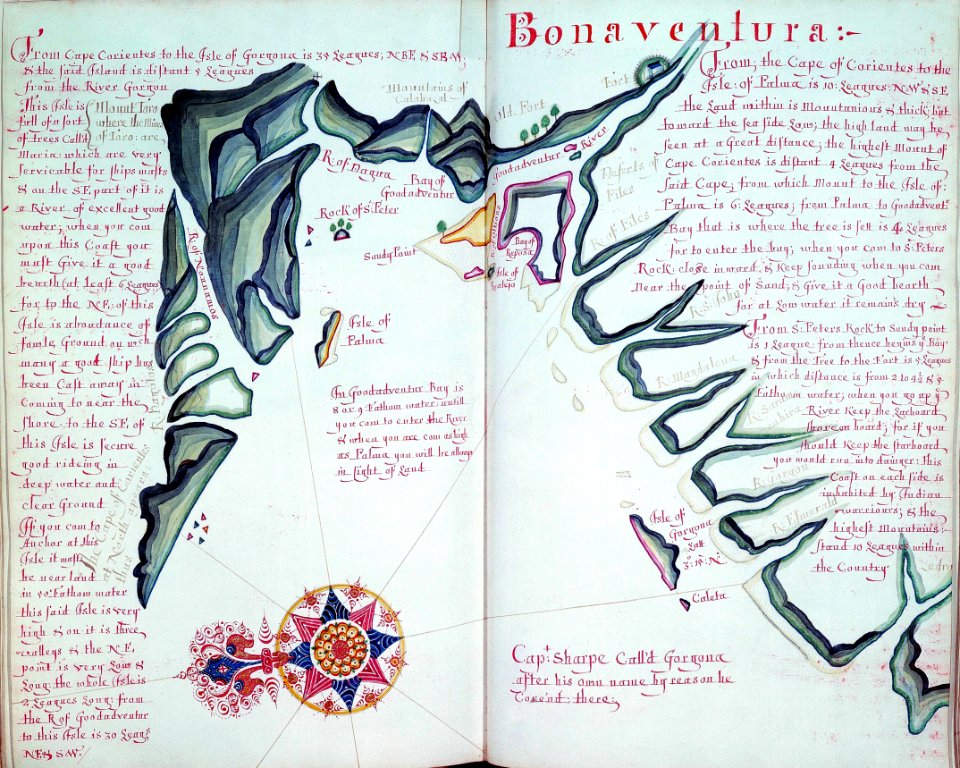 Bonaventura:~
From Cape Corientes to the Isle of Gorgona is 34 Leagues; NBE SSBW
& the said Island is distant 4 Leagues
from the River Gorgon
This Isle is
full of a sort
of Trees Call'd
Maria: which are very
Servicable for ships masts
& on the SE, part of it is
a River, of excellent good
water; when you com
upon this Coast you
must Give it a good
bearth (at least 6 Leagues
for to the NE; of this
Isle is aboudance of
foule Ground on wch
many a good ship has
been Cast away in
Coming to near the
shore: to the SE, of
this Isle is secure
good rideing in
deep water and
clear Ground
If you com to
Anchor at this
Isle it must
be near land
in 40: Fathom water
this said Isle is very
high & on it is three
valleys & the NE,
point is very Low &
Long: the whole Isle is
2 Leagues Long: from
the R of Goodadventur
to this Isle is 30 Leags
NE& SW:
Mount Toro
where the
of Toro: are
Mountains of
old Fort
Fort
Goodadventur River
R. of Dagua
Bay of
Goodadventur
Rock of S: Peter
Sandy Point
Bay of
Isle of
Deserts of
Piles
R. of Piles
R. of Noanamos
Isle of
Palma
In Goodadventur Bay is
8 or 9 Fathom water; untill
you com to enter the River
& when you are com as high
as Palma you will be allways
in sight of Land
The Cape of Corientes
at North appears
thus
R. S: John
R. Mandalena
R. Gorgon
Isle of
Gorgona
Latt
3°: 15': N:
Caleta
From; the Cape of Corientes to the
Isle: of Palma is 10: Leagues: NW & SE
the Land within is Mountanious & thick; but
toward the sea side Low; the high land may be
seen at a Great distance; the highest Mount of
Cape Corientes is distant 4 Leagues from the
said Cape; from which Mount to the Isle of:
Palma is 6: Leagues; from Palma to Goodadventr
Bay that is where the tree is set is 4 Leagues
for to enter the bay; when you com to S: Peters
Rock: close in ward; & Keep sounding when you com
Near the point of Sand; & Give it a Good bearth
for at Low water it remains dry
From S: Peters Rock, to Sandy point
is 1 League from thence begins ye Bay
& from the Tree to the Fort is 4 Leagues
in which distance is from 2 to 4½ &
Fathom water; when you go up ye
River Keep the Larboard
shore on board; for if you
should Keep the starboard
you would run into danger: this
Coast on each side is
inhabited by Indian
warriours; & the
highest Mountains:
stand 10 Leagues within
the Country
Capt Sharpe Call'd Gorgona
after his own name by reason he
Careen'd there;